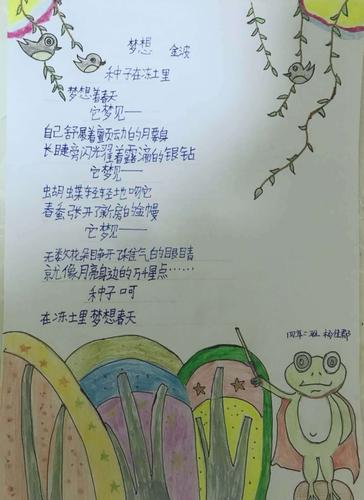 梦想 金波
种子在冻土里
梦想着春天
它梦见——
自己舒展着颤动的腰身
长睫旁闪光耀着露滴的银钻
它梦见——
蝴蝶轻轻地吻它
春蚕张开了新房的金幔
它梦见——
无数花朵睁开了稚气的眼睛
就像月亮身边的万千星点……
种子呵
在冻土里梦想春天
四年二班